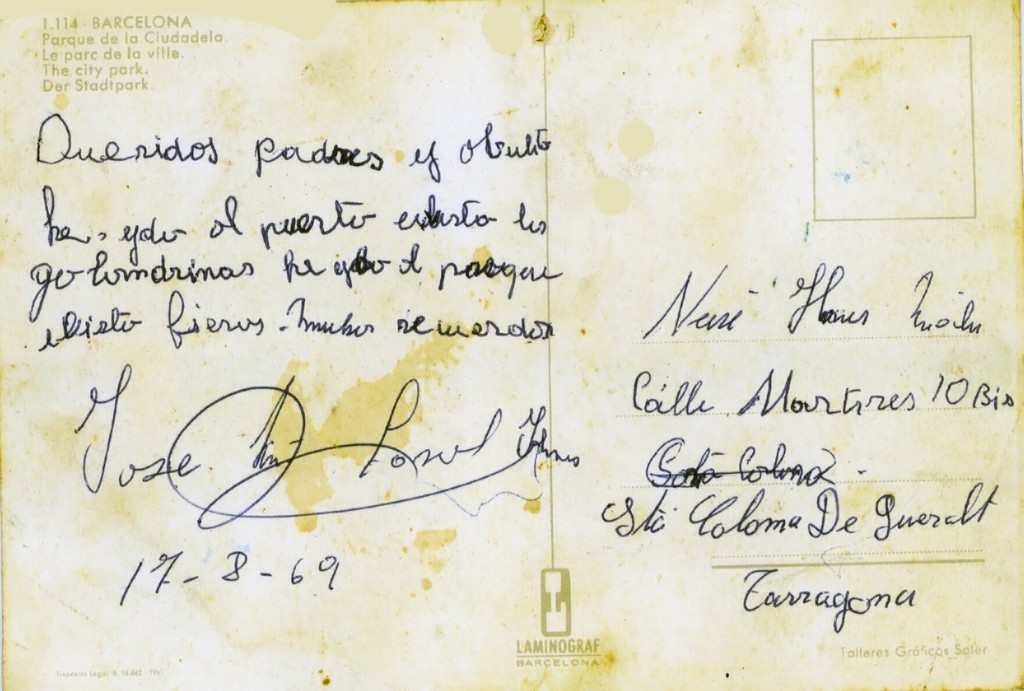 1.114 - BARCELONA
Parque de la Ciudadela
Le parc de la ville.
The city park.
Der Stadtpark.
Queridos padres y
he ydo al puerto los
golondrinas he ydo al parque
e visto fieras. muchos recuerdos
Jose
17-8-69
Calle Martires 10 Bis
Sta Coloma
Sta Coloma De Queralt
Tarragona
LAMINOGRAF
BARCELONA
Talleres Gráficos Soler
Depósito Legal B. 18.642 - 1961